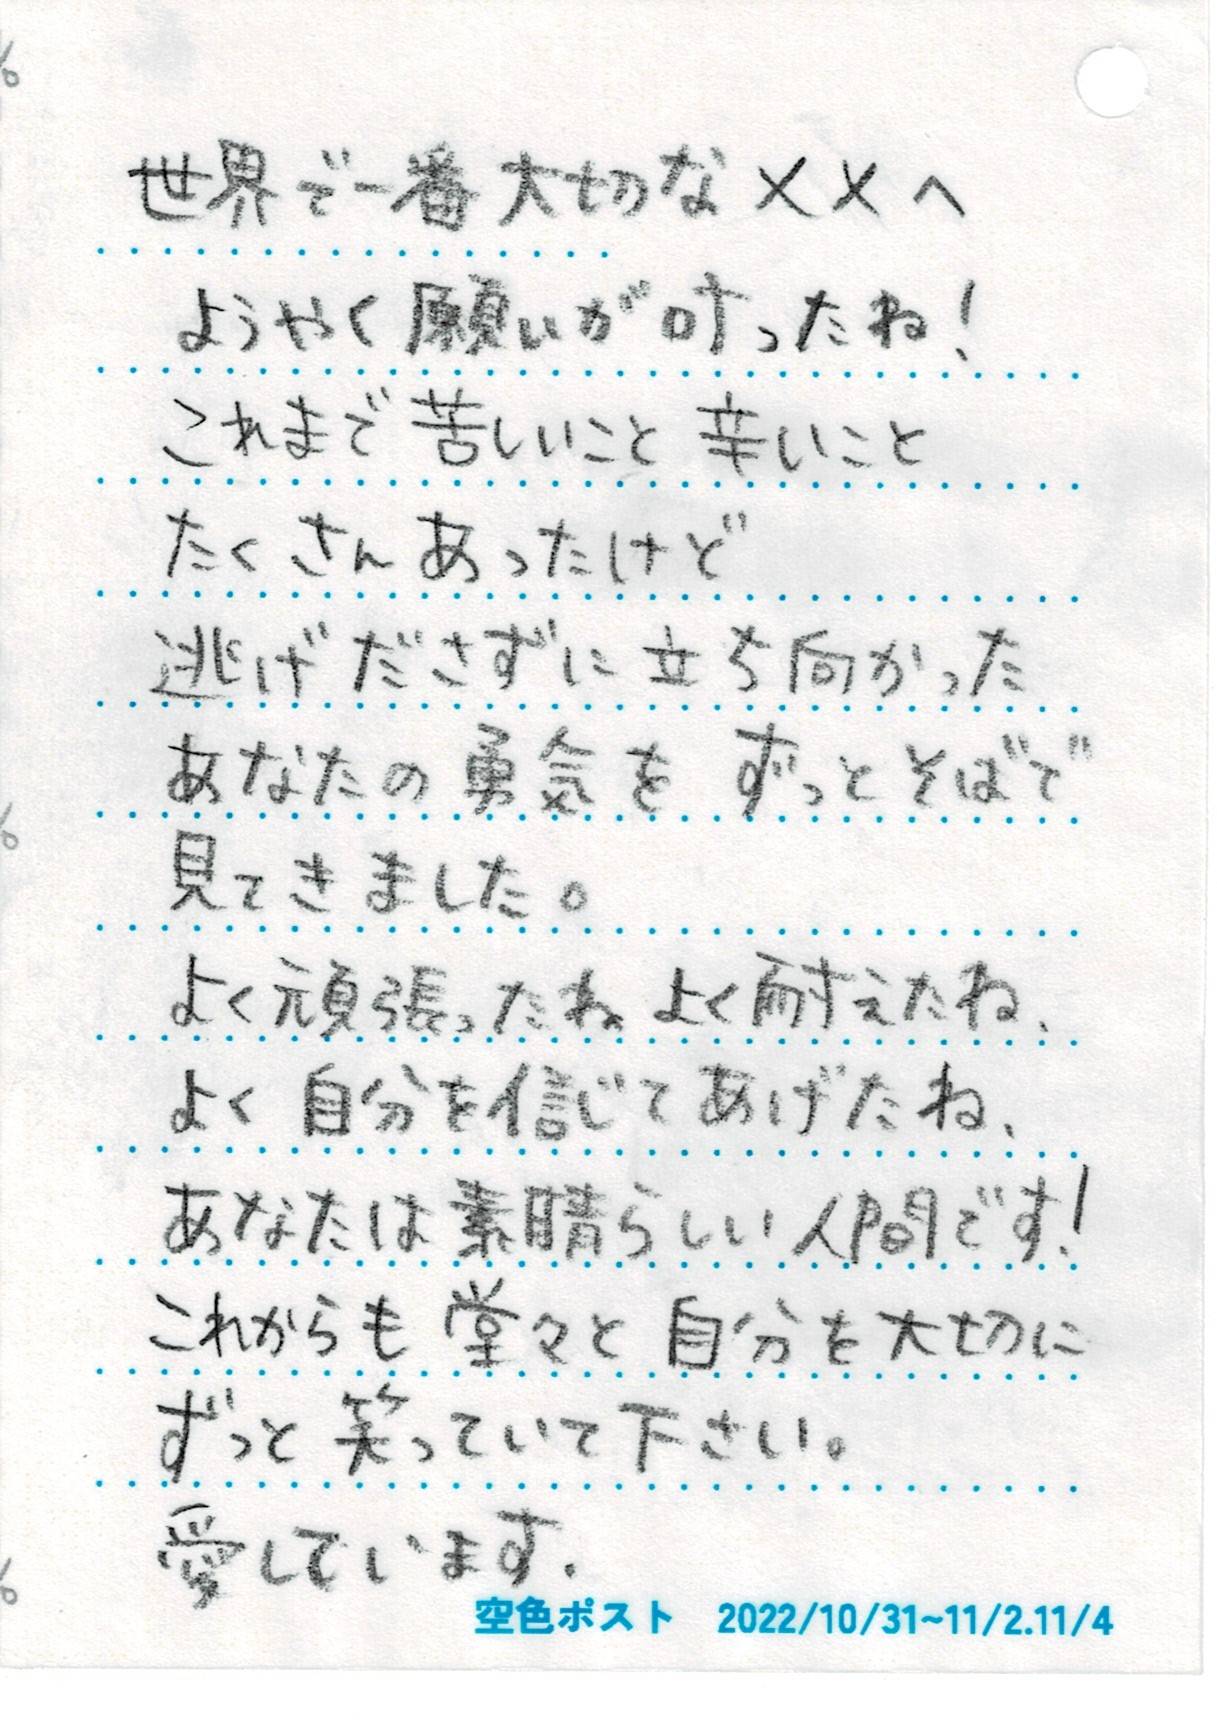 世界で一番大切な××へ
ようやく願いが叶ったね!
これまで苦しいこと 辛いこと
たくさんあったけど
逃げださずに立ち向かった
あなたの勇気を ずっとそばで
見てきました。
よく頑張ったね、よく耐えたね、
よく自分を信じてあげたね、
あなたは素晴らしい人間です!
これからも堂々と自分を大切に
ずっと笑っていて下さい。
愛しています.
空色ポスト 2022/10/31~11/2.11/4